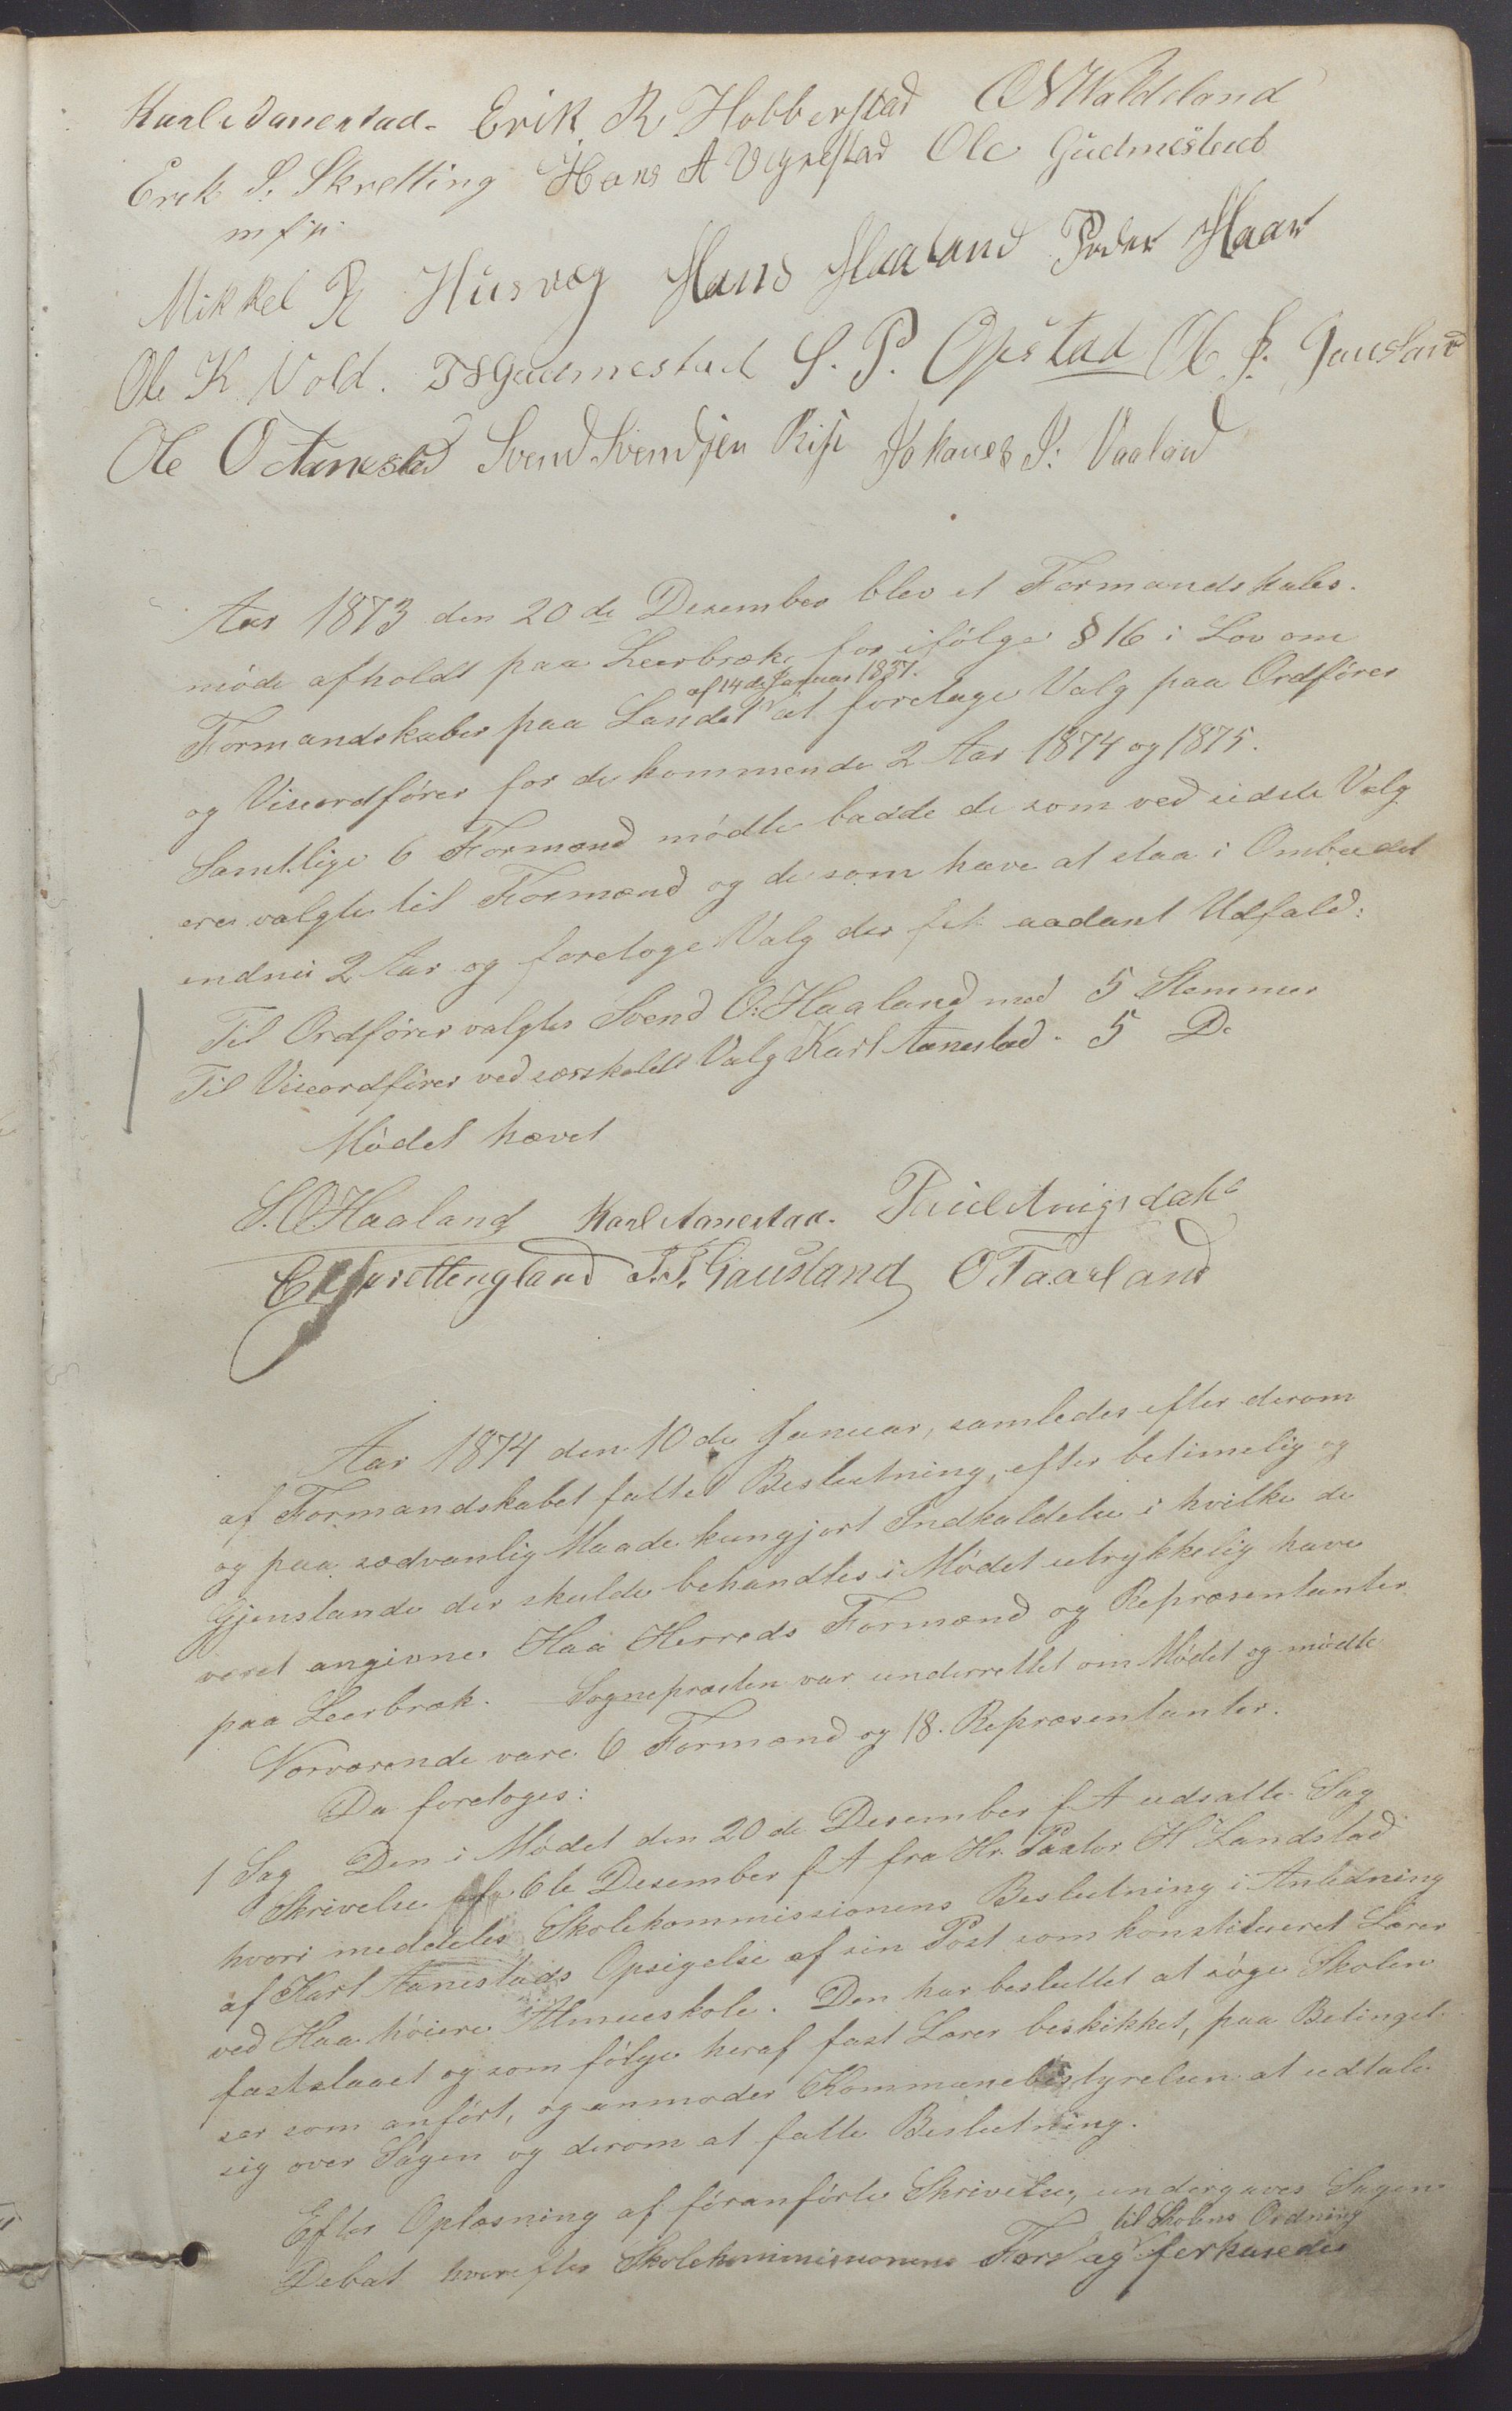 Karl Aanestad. Erik R. Hobberstad O N Waldeland
Erik P. Skretting Hans A Vigrestad Ole Gudmestad
m f p.
Mikkel R Husvæg Hans Haaland Peder Haar
Ole K Vold. T S Gudmestad S. P. Opstad Ol P. Gausland
Ole O Aanestad Svend Svendsen Riše Johanes J. Vaaland
Aar 1873 den 20de Desember blev et Formandskabs-
møde afholdt paa Leerbræk for ifølge § 16 i Lov om
af 14de Januar 1837.
Formandskaber paa Landet at foretage Valg paa Ordfører
og Viseordfører for de kommende 2 Aar 1874 og 1875.
Samtlige 6 Formænd mødte baade de som ved sidste Valg
ere valgte til Formænd og de som have at staa i Ombudet
endnu 2 Aar og foretoge Valg der fik saadant Udfald:
Til Ordfører valgtes Svend O. Haaland med 5 Stemmer
Til Viseordfører ved særskildt Valg Karl Aanestad - 5 Do
Mødet hævet
S. O. Haaland Karl Aanestad. Poul Aniksdahl
E Skrettingland T. T. Gausland O Taarland
Aar 1874 den 10de Januar, samledes efter derom
af Formandskabet fattet Beslutning, efter betimelig og
og paa sædvanlig Maade kungjort Indkaldelse i hvilke de
Gjenstande der skulde behandles i Mødet utrykkelig have
været angivne Haa Herreds Formænd og Repræsentanter
paa Leerbræk. Sognepræsten var underrettet om Mødet og mødte
Nærværende vare 6 Formænd og 18. Repræsentanter.
Da foretoges:
1 Sag Den i Mødet den 20de Desember f A udsatte Sag
Skrivelse af 6te Desember f A fra Hr. Pastor H Landstad
hvori meddeles Skolekommissionens Beslutning i Anledning
af Karl Aanestads Opsigelse af sin Post som konstitueret Lærer
ved Haa høiere Almueskole. Den har besluttet at søge Skolen
fastslaaet og som følge heraf fast Lærer beskikket, paa Betingel-
ser som anført, og anmoder Kommunebestyrelsen at udtale
sig over Sagen og derom at fatte Beslutning.
Efter Oplæsning af foranførte Skrivelse, undergaves Sagen
til Skolens Ordning
Debat hvorefter Skolekommissionens Forslag forkastedes